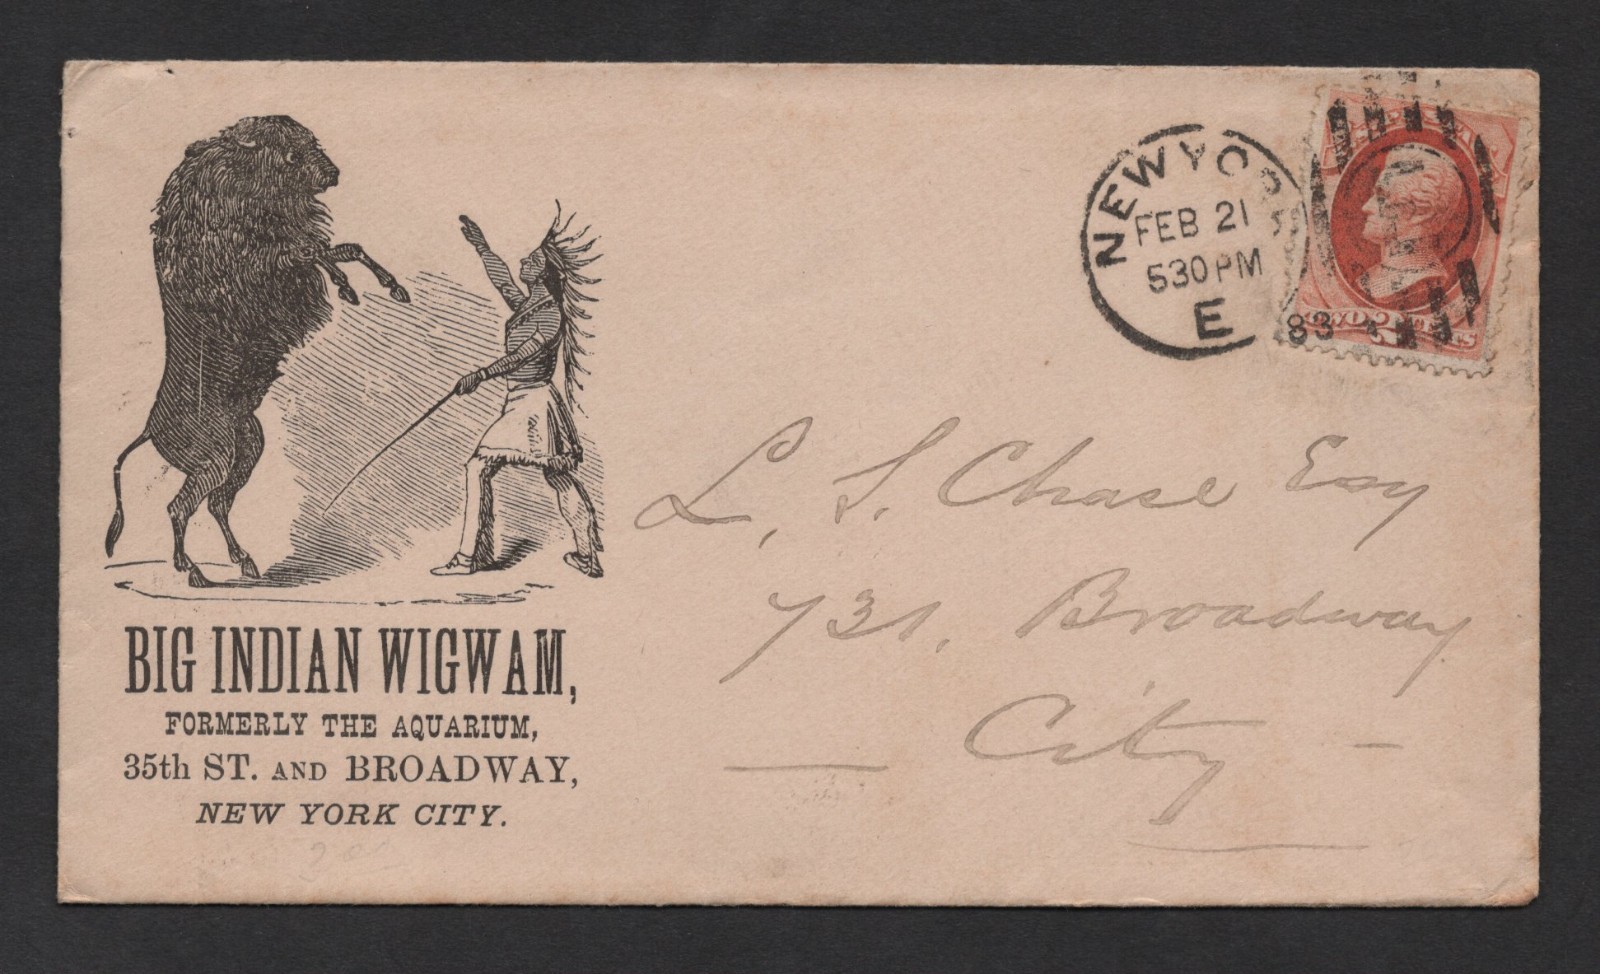 BIG INDIAN WIGWAM,
FORMERLY THE AQUARIUM,
35th ST. AND BROADWAY,
NEW YORK CITY.
NEW YORK
FEB 21
530 PM
E
83
TWO 2 CENTS
L. S. Chase Esq
731, Broadway
City